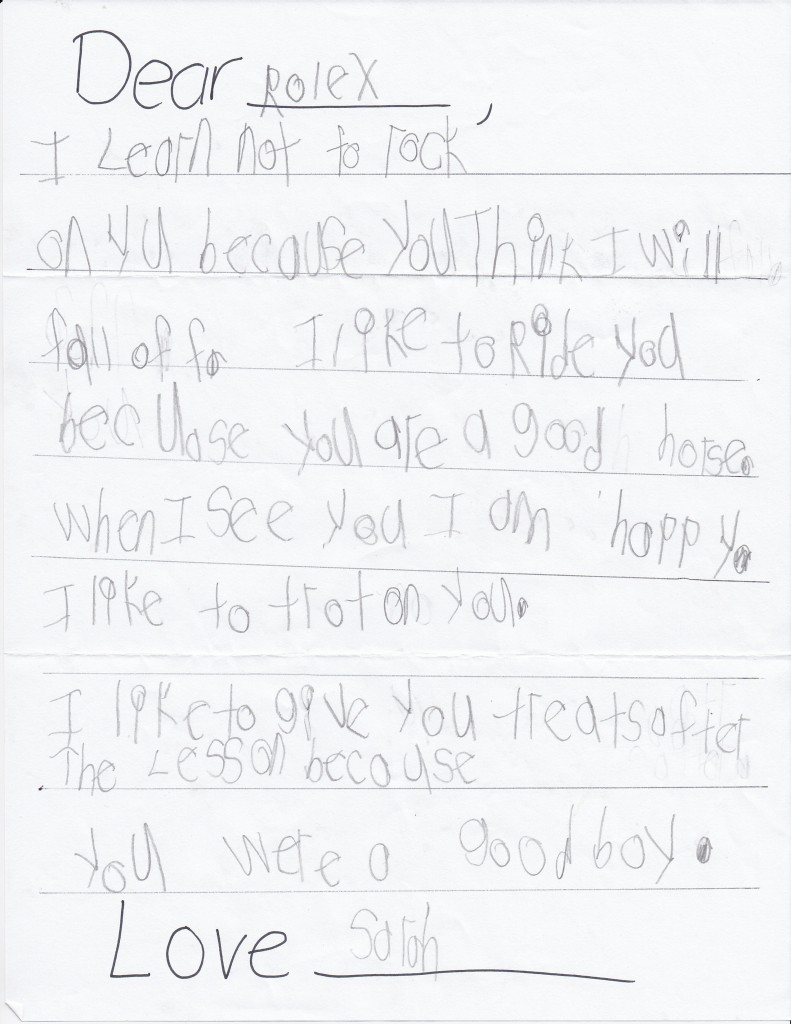 Dear Rolex,
I Learn not to rock
on yu because you Think I will
fall of fo I like to Ride you
becuase you are a good horse.
when I see you I am happy.
I like to trot on you.
I like to give you treats after
The Lesson because
you were a good boy.
Love Sarah